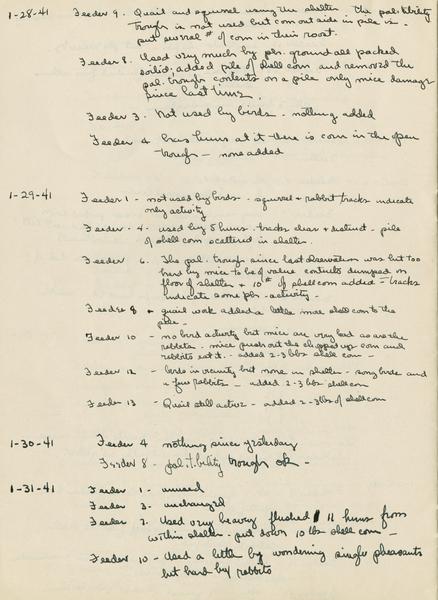 1-28-41 Feeder 9. Quail and squirrel using the shelter The pal-tibility
trough is not used but corn out side in pile is -
put several # of corn in their roost.
Feeder 8. Used very much by phs. ground all packed
soiled, added pile of shell corn and removed the
pal. trough contents on a pile only mice damage
since last time.
Feeder 3. Not used by birds. - nothing added
Feeder 4 has huns at it there is corn in the open
trough - none added
1-29-41 Feeder 1 - not used by birds - squirrel + rabbit tracks indicate
only activity
Feeder - 4 - used by 5 huns. tracks clear + distinct - pile
of shell corn scattered in shelter.
Feeder 6. The pal. trough since last observation was but too
hard by mice to be of value contents dumped on
floor of shelter + 10# of shell corn added - tracks
indicate some phs - activity -
Feeder 8 + quail work added a little more shell corn to the
pile -
Feeder 10 - no bird activity but mice are very bad as are the
rabbits. mice push out the chipped up corn and
rabbits eat it. - added 2-3 lbs shell corn -
Feeder 12 - birds in vicinity but none in shelter - song birds and
a few rabbits - added 2-3 lbs shell corn
Feeder 13 - Quail still active - added 2-3 lbs of shell corn
1-30-41 Feeder 4 nothing since yesterday
Feeder 8 - pal-t-bility trough ok -
1-31-41 Feeder 1 - unused
Feeder 3 - unchanged
Feeder 7. Used very heavy flushed 11 huns from
within shelter - put down 10 lbs shell corn -
Feeder 10 - Used a little by wondering single pheasants
but hard by rabbits